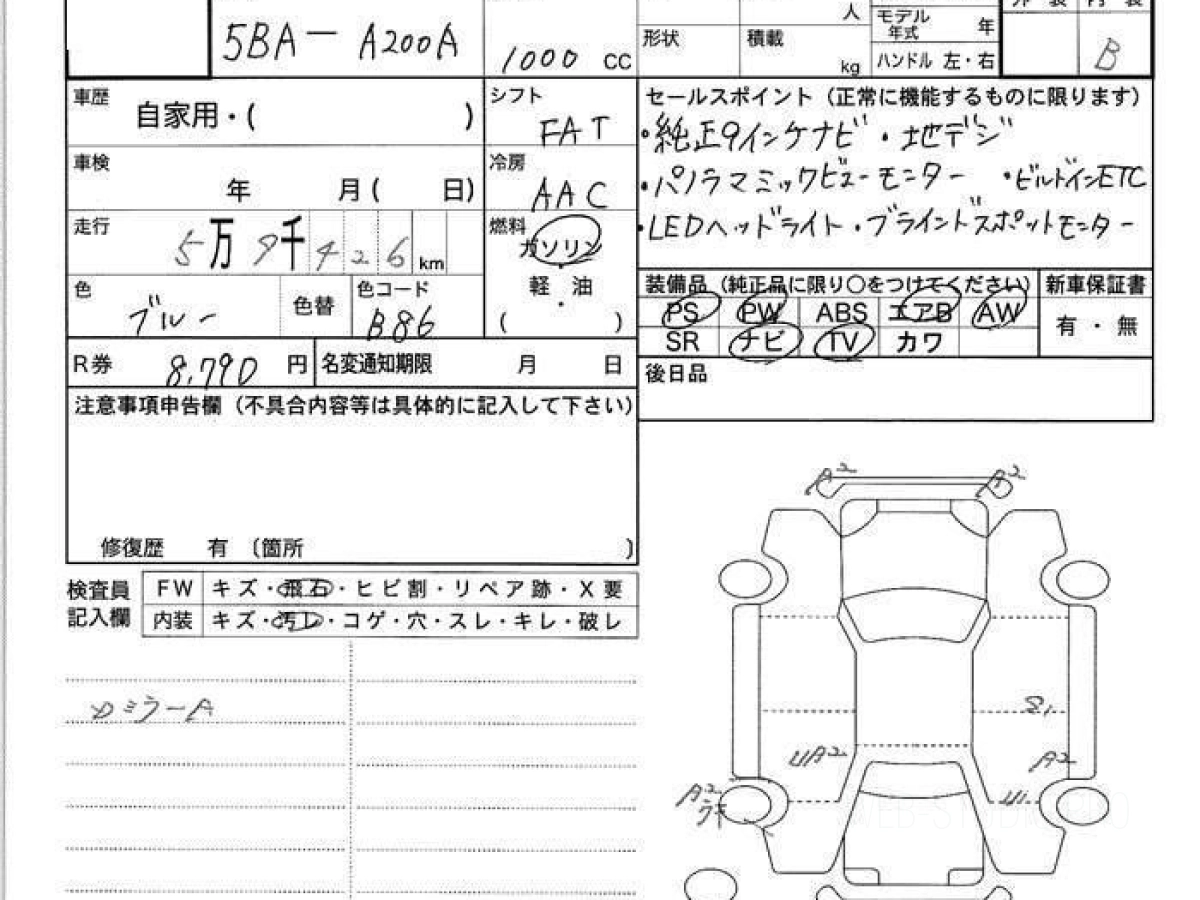 外 装 内 装
5BA- A200A
1000 cc
形状
人
積載
kg
モデル年式 年
ハンドル 左・右
B
車歴 自家用・( )
シフト FAT
セールスポイント (正常に機能するものに限ります)
・純正9インチナビ ・地デジ
・パノラマミックビューモニター ・ビルトインETC
・LEDヘッドライト ・ブラインドスポットモニター
車検 年 月( 日)
冷房 AAC
走行 5万9千426km
燃料 ガソリン・軽油・( )
色 ブルー 色替 色コード B86
装備品 (純正品に限り○をつけてください) 新車保証書
PS PW ABS エアB AW 有・無
SR ナビ TV カワ
R券 8,790 円 名変通知期限 月 日
後日品
注意事項申告欄 (不具合内容等は具体的に記入して下さい)
修復歴 有 〔箇所 〕
検査員記入欄
FW キズ・飛石・ヒビ割・リペア跡・X要
内装 キズ・汚レ・コゲ・穴・スレ・キレ・破レ
ミラーA
A2 A2
UA2 A2
A2